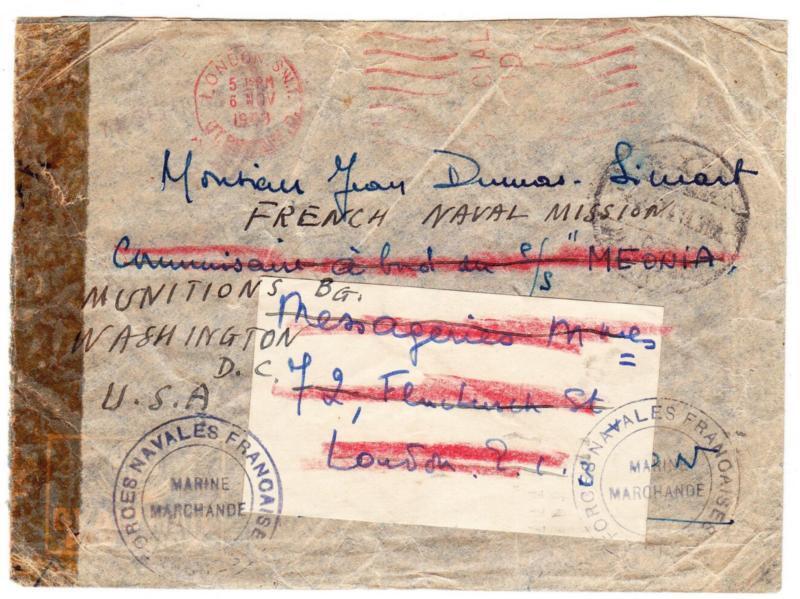 LONDON S.W.1.
5 15 PM
6 NOV
CIAL
D
Monsieur Jean Dumas-Simart
FRENCH NAVAL MISSION
Commissaire à bord du S/S "MEONIA,
MUNITIONS BG.
Messageries Mmes
WASHINGTON
D.C.
72, Fenchurch St
U.S.A
London. E.C.
FORCES NAVALES FRANÇAISES
MARINE
MARCHANDE
FORCES NAVALES FRANÇAISES
MARINE
MARCHANDE